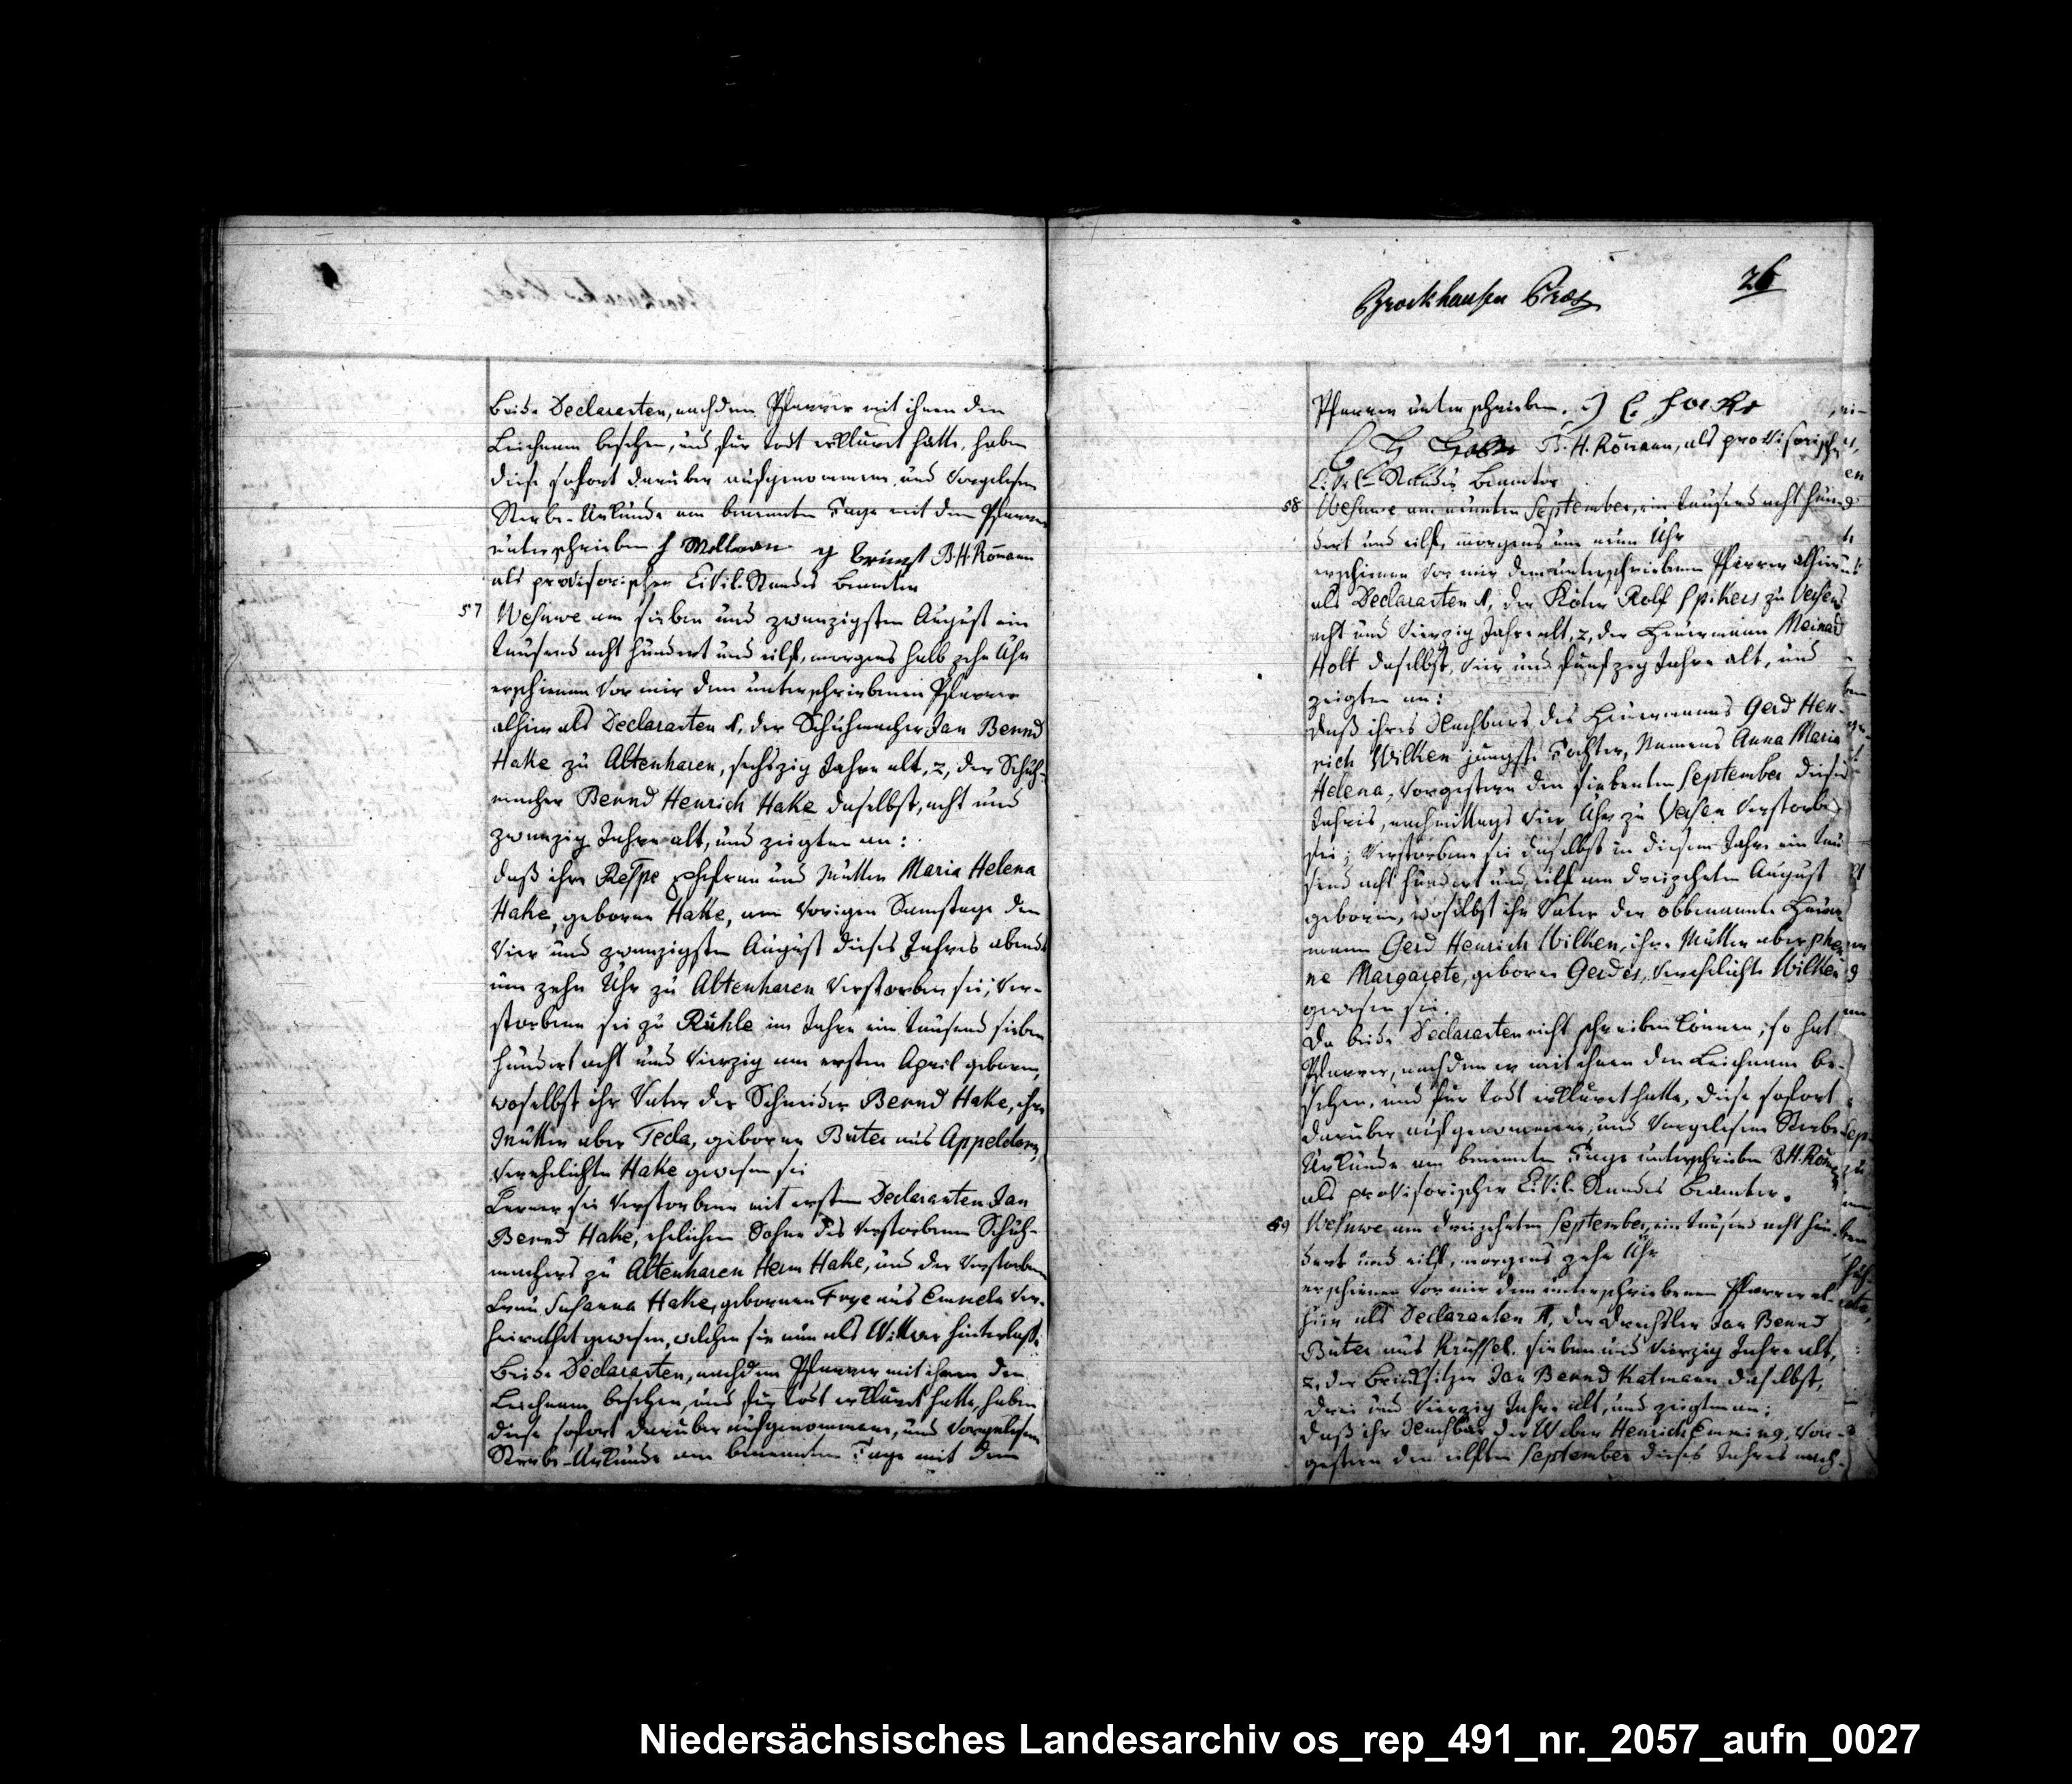 beide Declaranten, nachdem Pfarrer mit ihnen den
Leichnam besehen, und für todt erkläret hatte, haben
diese sofort darüber aufgenommene und vorgelesene
Sterbe-Urkunde am benannten Tage mit dem Pfarrer
unterschrieben B. H. Römann
als provisorischer Civil-Standes Beamter
57 Wesuwe am sieben und zwanzigsten August ein
tausend acht hundert und eilf, morgens halb zehn Uhr
erschienen vor mir dem unterschriebenen Pfarrer
alhier als Declaranten 1, der Schuhmacher Jan Bernd
Hake zu Altenharen, sechszig Jahre alt, 2, der Schuh-
macher Bernd Henrich Hake daselbst, acht und
zwanzig Jahre alt, und zeigten an:
daß ihre Respe Ehefrau und Mutter Maria Helena
Hake, geborne Hake, am vorigen Samstage den
vier und zwanzigsten August dieses Jahres abends
um zehn Uhr zu Altenharen verstorben sei; Ver-
storbene sei zu Rühle im Jahre ein tausend sieben
hundert acht und vierzig am ersten April geboren,
woselbst ihr Vater der Schneider Bernd Hake, ihre
Mutter aber Tecla, geborne Büter aus Appeldorn,
verehelichte Hake gewesen sei
Ferner sei Verstorbene mit erstem Declaranten Jan
Bernd Hake, ehelichem Sohne des verstorbenen Schuh-
machers zu Altenharen Herm Hake, und der verstorbenen
Frau Susanna Hake, gebornen Frye aus Emmeln ver-
heirathet gewesen, welchen sie nun als Wittwer hinterlasse.
Beide Declaranten, nachdem Pfarrer mit ihnen den
Leichnam besehen, und für todt erkläret hatte, haben
diese sofort darüber aufgenommene, und vorgelesene
Sterbe-Urkunde am benannten Tage mit dem
Brockhausen
26
Pfarrer unterschrieben.
B. H. Römann, als provisorischer
Civil-Standes Beamter
58 Wesuwe am neunten September, ein tausend acht hun-
dert und eilf, morgens um neun Uhr
erschienen vor mir dem unterschriebenen Pfarrer alhier
als Declaranten 1, der Köter Rolf Spikers zu Versen
acht und vierzig Jahre alt, 2, der Heuermann Meinard
Holt daselbst, vier und fünfzig Jahre alt, und
zeigten an:
daß ihres Nachbars des Heuermanns Gerd Hen-
rich Wilken jüngste Tochter, Namens Anna Maria
Helena, vorgestern den siebenten September dieses
Jahres, nachmittags vier Uhr zu Versen verstorben
sei; Verstorbene sei daselbst in diesem Jahre ein tau-
send acht hundert und eilf am dreizehnten August
geboren, woselbst ihr Vater der obbenannte Heuer-
mann Gerd Henrich Wilken, ihre Mutter aber Phen-
ne Margarete, geborne Gerdes, verehelichte Wilken
gewesen sei.
Da beide Declaranten nicht schreiben können, so hat
Pfarrer, nachdem er mit ihnen den Leichnam be-
sehen, und für todt erkläret hatte, diese sofort
darüber aufgenommene, und vorgelesene Sterbe-
Urkunde am benannten Tage unterschrieben B. H. Röm
als provisorischer Civil-Standes Beamter.
59 Wesuwe am dreizehnten September, ein tausend acht hun-
dert und eilf, morgens zehn Uhr
erschienen vor mir dem unterschriebenen Pfarrer al-
hier als Declaranten 1, der Drechsler Jan Bernd
Büter aus Krüssel, sieben und vierzig Jahre alt,
2, der Brinksitzer Jan Bernd Katmann daselbst,
drei und vierzig Jahre alt, und zeigten an:
daß ihr Nachbar der Weber Henrich Enning, vor-
gestern den eilften September dieses Jahres nach-
Niedersächsisches Landesarchiv os_rep_491_nr._2057_aufn_0027